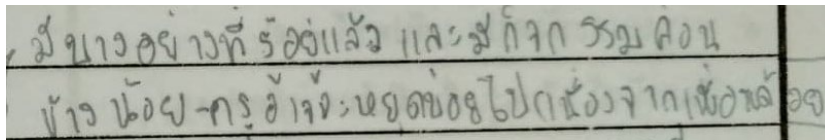 มีบางอย่างที่ร้อยแล้ว และมีกิจกรรมค่อน
ข้างน้อย-ครูอ้ำจะหยุดบ่อยไปเนื่องจาก